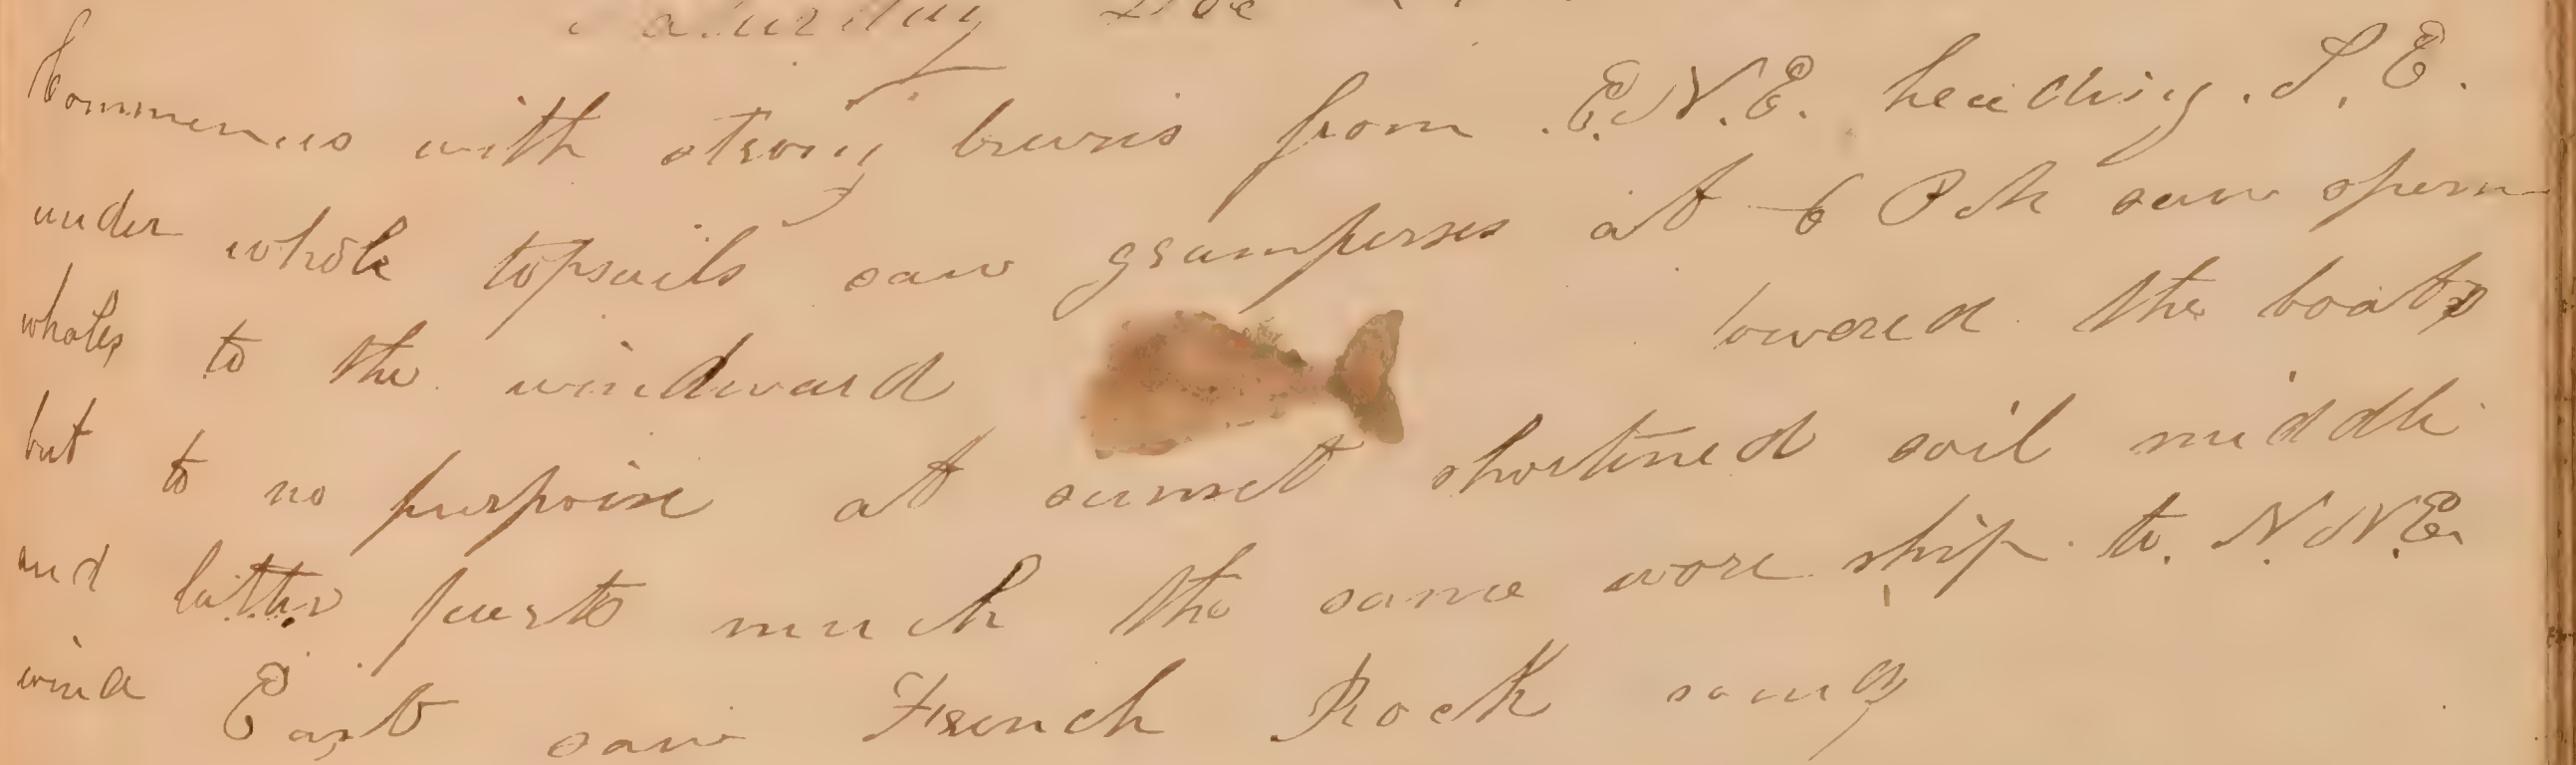 Saturday
Commences with strong breezes from E.N.E. heading S.E.
under whole topsails saw grampusses at 6 PM saw sperm
whales to the windward lowered the boats
but to no purpoise at sunset shortened sail middle
and latter parts much the same wore ship to N.N.E.
wind East saw French Rock